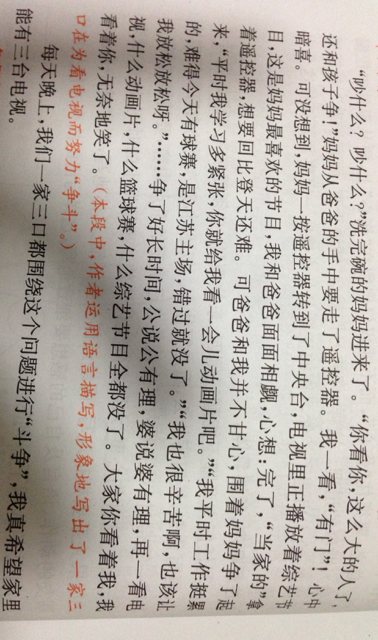 “吵什么？吵什么？”洗完碗的妈妈进来了。“你看你，这么大的人了，
还和孩子争！”妈妈从爸爸的手中要走了遥控器。我一看，“有门”！心中
暗喜。可没想到，妈妈一按遥控器转到了中央台，电视里正播放着综艺节
目，这是妈妈最喜欢的节目，我和爸爸面面相觑，心想：完了，“当家的”拿
着遥控器，想要回比登天还难。可爸爸和我并不甘心，围着妈妈争了起
来，“平时我学习多紧张，你就给我看一会儿动画片吧。”“我平时工作挺累
的，难得今天有球赛，是江苏主场，错过就没了。”“我也很辛苦啊，也该让
我放松放松呀。”……争了好长时间，公说公有理，婆说婆有理，再一看电
视，什么动画片，什么篮球赛，什么综艺节目全都没了。大家你看着我，我
看着你，无奈地笑了。（本段中，作者运用语言描写，形象地写出了一家三
口在为看电视而努力“争斗”。）
每天晚上，我们一家三口都围绕这个问题进行“斗争”，我真希望家里
能有三台电视。